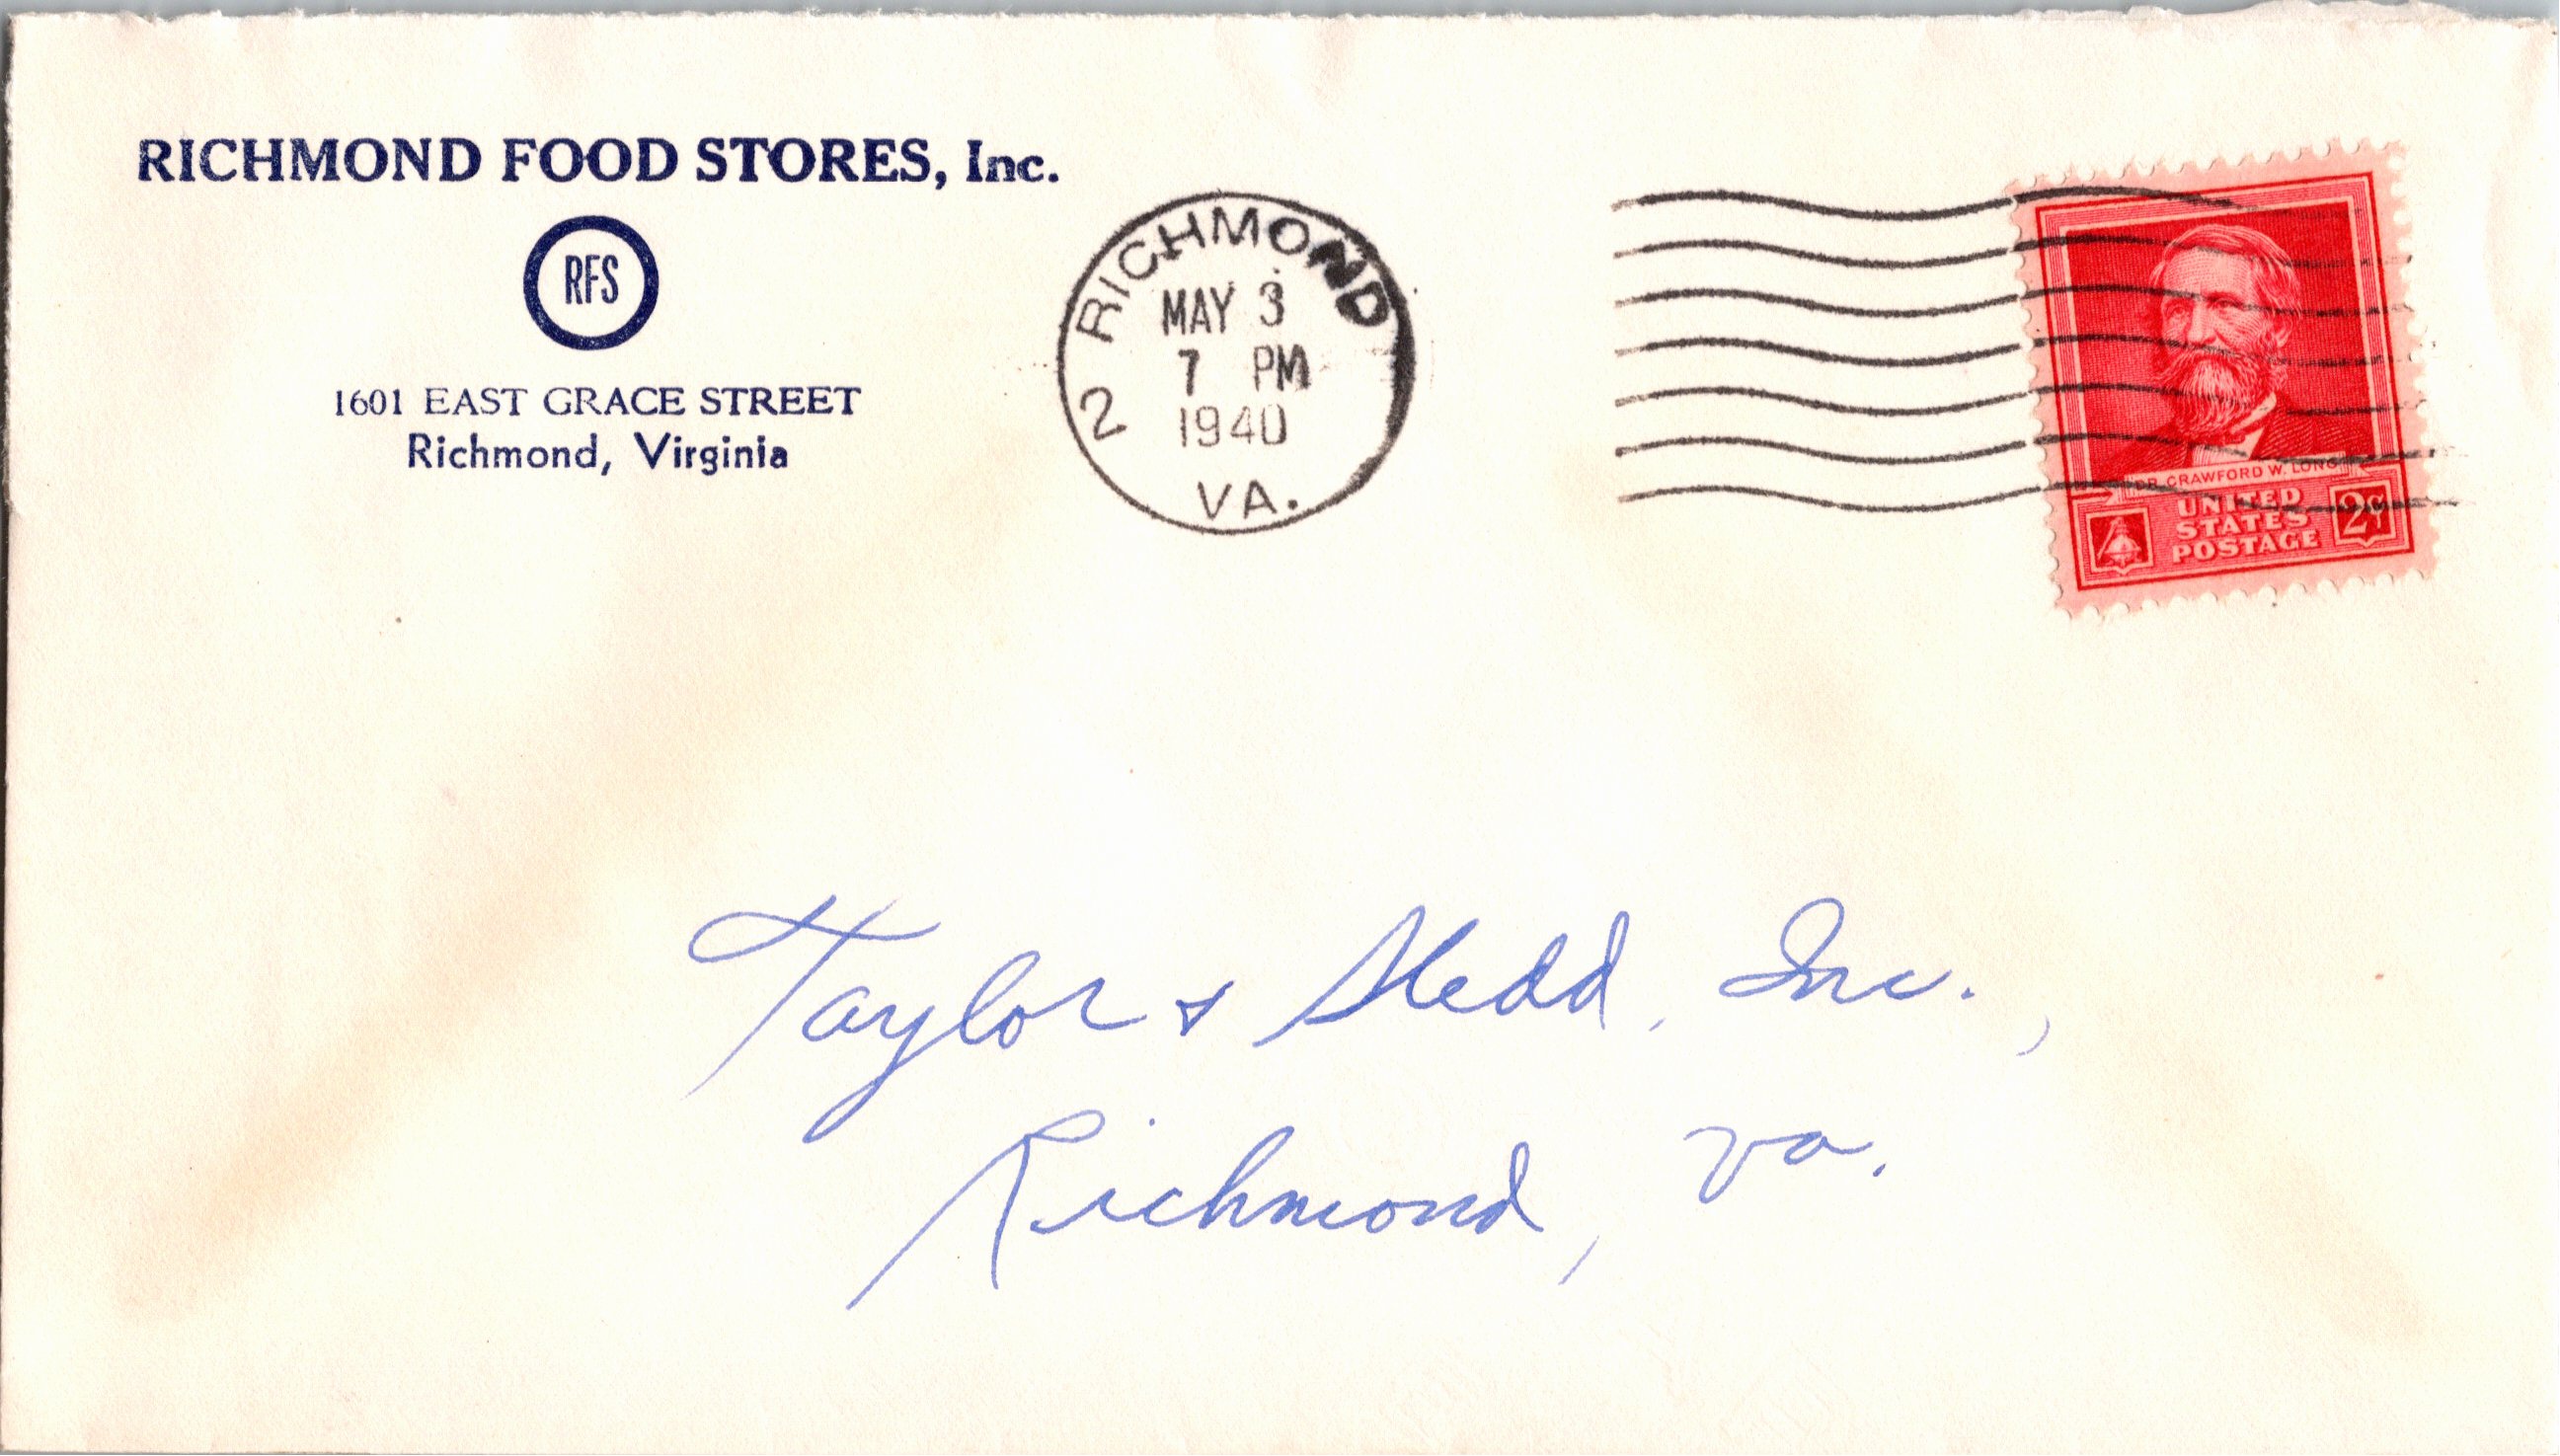 RICHMOND FOOD STORES, Inc.
RFS
1601 EAST GRACE STREET
Richmond, Virginia
RICHMOND
MAY 3
7 PM
1940
2
VA.
DR. CRAWFORD W. LONG
UNITED
STATES
POSTAGE
2¢
Taylor & Sledd, Inc.,
Richmond, Va.